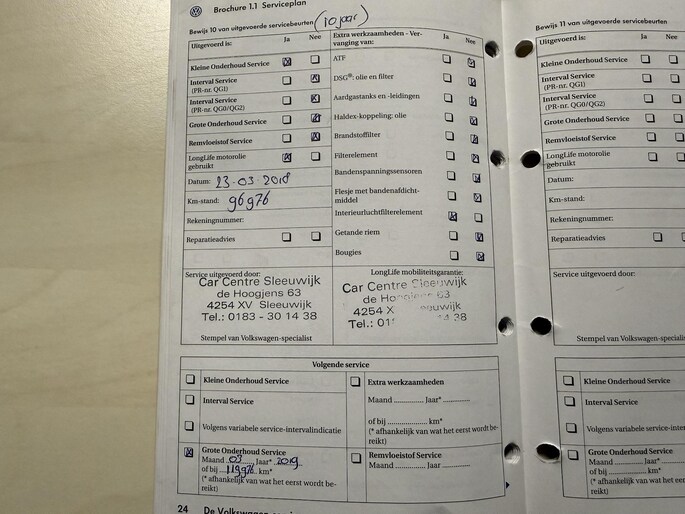 Brochure 1.1 Serviceplan
Bewijs 10 van uitgevoerde servicebeurten (10 jaar)
Uitgevoerd is: Ja Nee
Kleine Onderhoud Service
Interval Service
(PR-nr. QG1)
Interval Service
(PR-nr. QG0/QG2)
Grote Onderhoud Service
Remvloeistof Service
LongLife motorolie
gebruikt
Datum: 23-03-2018
Km-stand: 96976
Rekeningnummer:
Reparatieadvies
Extra werkzaamheden - Ver-
vanging van: Ja Nee
ATF
DSG®: olie en filter
Aardgastanks en -leidingen
Haldex-koppeling: olie
Brandstoffilter
Filterelement
Bandenspanningssensoren
Flesje met bandenafdicht-
middel
Interieurluchtfilterelement
Getande riem
Bougies
Service uitgevoerd door:
Car Centre Sleeuwijk
de Hoogjens 63
4254 XV Sleeuwijk
Tel.: 0183 - 30 14 38
Stempel van Volkswagen-specialist
LongLife mobiliteitsgarantie:
Car Centre Sleeuwijk
de 63
4254 X
Tel.: 38
Stempel van Volkswagen-specialist
Volgende service
Kleine Onderhoud Service
Interval Service
Volgens variabele service-intervalindicatie
Grote Onderhoud Service
Maand 03 Jaar* 2019
of bij 119976 km*
(* afhankelijk van wat het eerst wordt be-
reikt)
Extra werkzaamheden
Maand .............. Jaar* ............
of bij .................. km*
(* afhankelijk van wat het eerst wordt be-
reikt)
Remvloeistof Service
Maand .............. Jaar ............
24 De Volkswagen
Bewijs 11 van uitgevoerde servicebeurten
Uitgevoerd is: Ja Nee
Kleine Onderhoud Service
Interval Service
(PR-nr. QG1)
Interval Service
(PR-nr. QG0/QG2)
Grote Onderhoud Service
Remvloeistof Service
LongLife motorolie
gebruikt
Datum:
Km-stand:
Rekeningnummer:
Reparatieadvies
Service uitgevoerd door:
Stempel van Volkswagen-specialist
Kleine Onderhoud Service
Interval Service
Volgens variabele service-inter
Grote Onderhoud Service
Maand .............. Jaar*
of bij .................. km*
(* afhankelijk van wat het
reikt)